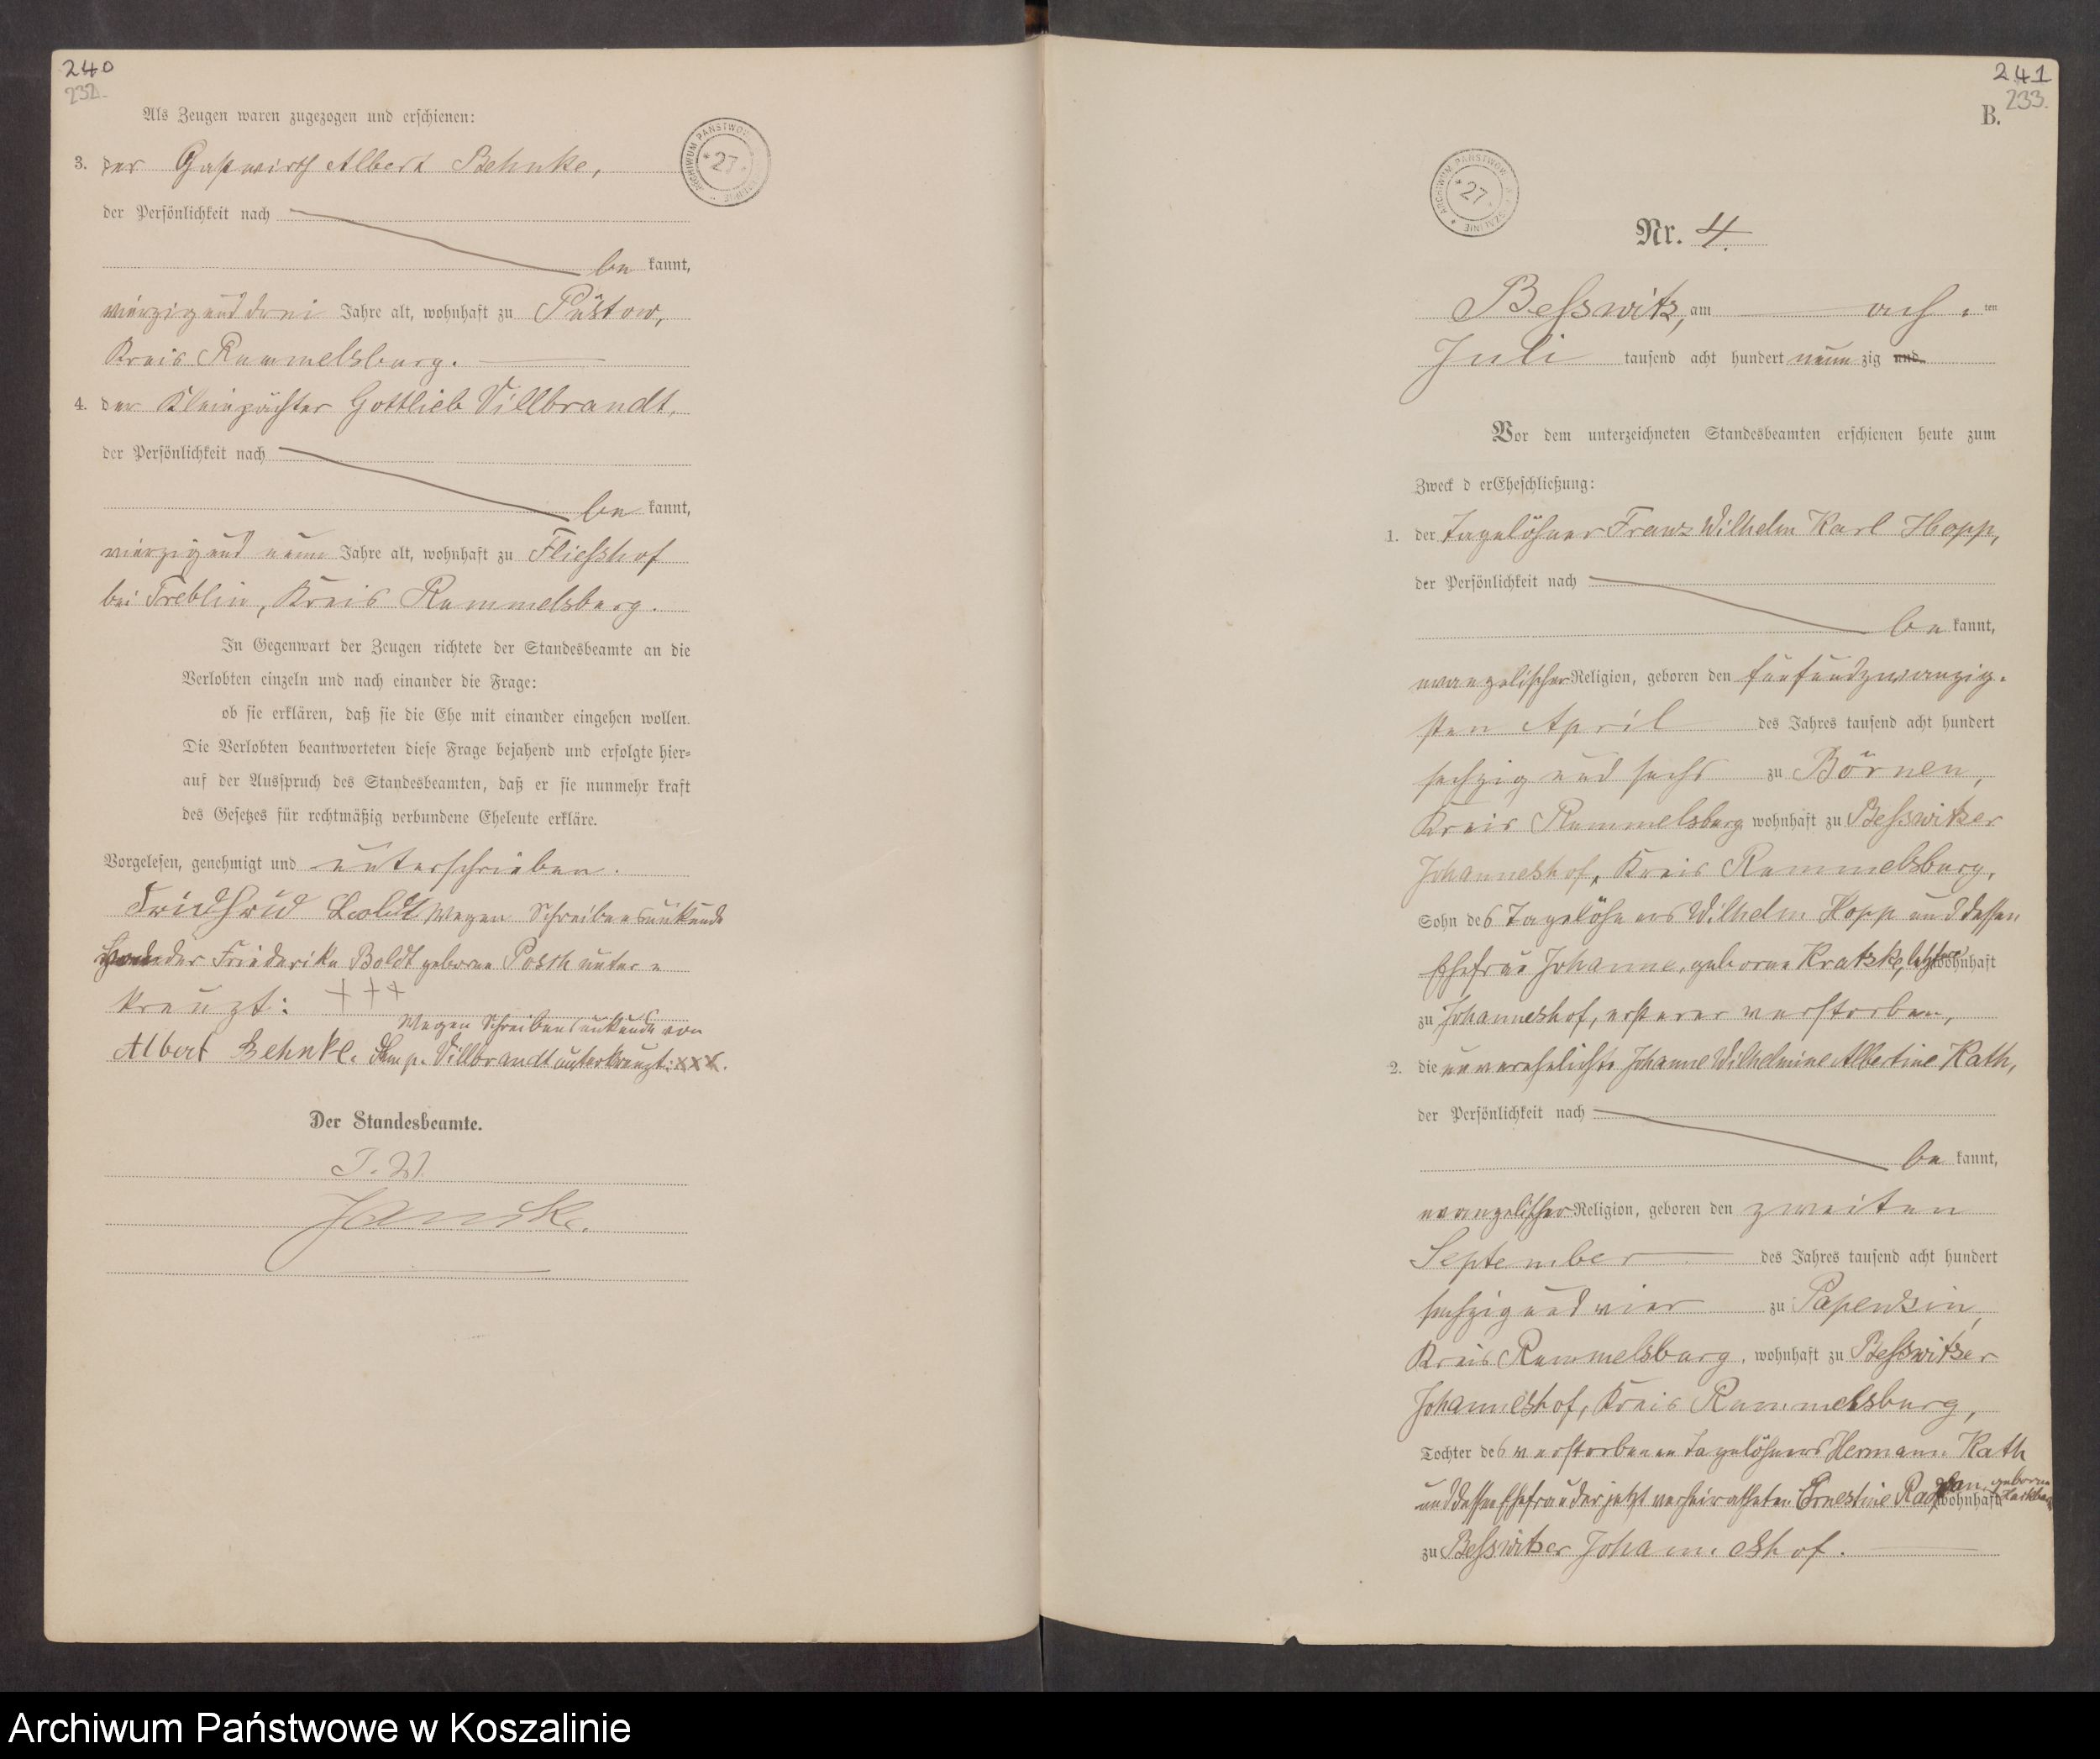 240
232.
Als Zeugen waren zugezogen und erschienen:
3. der Gastwirth Albert Behnke,
der Persönlichkeit nach
be kannt,
vierzig und drei Jahre alt, wohnhaft zu Püstow,
Kreis Rummelsburg.
4. der Kleinpächter Gottlieb Villbrandt,
der Persönlichkeit nach
be kannt,
vierzig und neun Jahre alt, wohnhaft zu Fliesshof
bei Treblin, Kreis Rummelsburg.
In Gegenwart der Zeugen richtete der Standesbeamte an die
Verlobten einzeln und nach einander die Frage:
ob sie erklären, daß sie die Ehe mit einander eingehen wollen.
Die Verlobten beantworteten diese Frage bejahend und erfolgte hier-
auf der Ausspruch des Standesbeamten, daß er sie nunmehr kraft
des Gesetzes für rechtmäßig verbundene Eheleute erkläre.
Vorgelesen, genehmigt und unterschrieben.
Boldt wegen Schreibensunkunde
der Friederike Boldt geborne Posth unter-
kreuzt: +++
Wegen Schreibensunkunde von
Albert Behnke. Villbrandt unterkreuzt: xxx.
Der Standesbeamte.
J. V.
ARCHIWUM PAŃSTWOWE W KOSZALINIE
* 27 *
241
233.
B.
ARCHIWUM PAŃSTWOWE W KOSZALINIE
* 27 *
Nr. 4.
Besswitz, am acht ten
Juli tausend acht hundert neun zig und
Vor dem unterzeichneten Standesbeamten erschienen heute zum
Zweck d er Eheschließung:
1. der Tagelöhner Franz Wilhelm Karl Hopp,
der Persönlichkeit nach
be kannt,
evangelischer Religion, geboren den fünfundzwanzig-
sten April des Jahres tausend acht hundert
sechzig und sechs zu Börnen,
Kreis Rummelsburg wohnhaft zu Besswitzer
Johanneshof, Kreis Rummelsburg,
Sohn des Tagelöhners Wilhelm Hopp und dessen
Ehefrau Johanne, geborne Kratzke, letztere wohnhaft
zu Johanneshof, ersterer verstorben,
2. die unverehelichte Johanne Wilhelmine Albertine Kath,
der Persönlichkeit nach
be kannt,
evangelischer Religion, geboren den zweiten
September des Jahres tausend acht hundert
sechzig und vier zu Papenzin,
Kreis Rummelsburg, wohnhaft zu Besswitzer
Johanneshof, Kreis Rummelsburg,
Tochter des verstorbenen Tagelöhners Hermann Kath
und dessen Ehefrau der jetzt verheiratheten Ernestine geborne wohnhaft
zu Besswitzer Johanneshof.
Archiwum Państwowe w Koszalinie